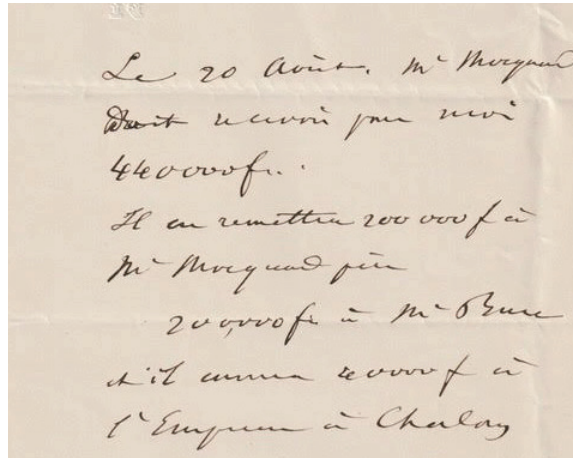 Le 20 Août. Mr Mocquard
Doit recevoir pour moi
440000f.
Il en remettra 200 000 f à
Mr Mocquard père
200,000f à Mr Bure
et il enverra 40000 f à
l'Empereur à Chalons